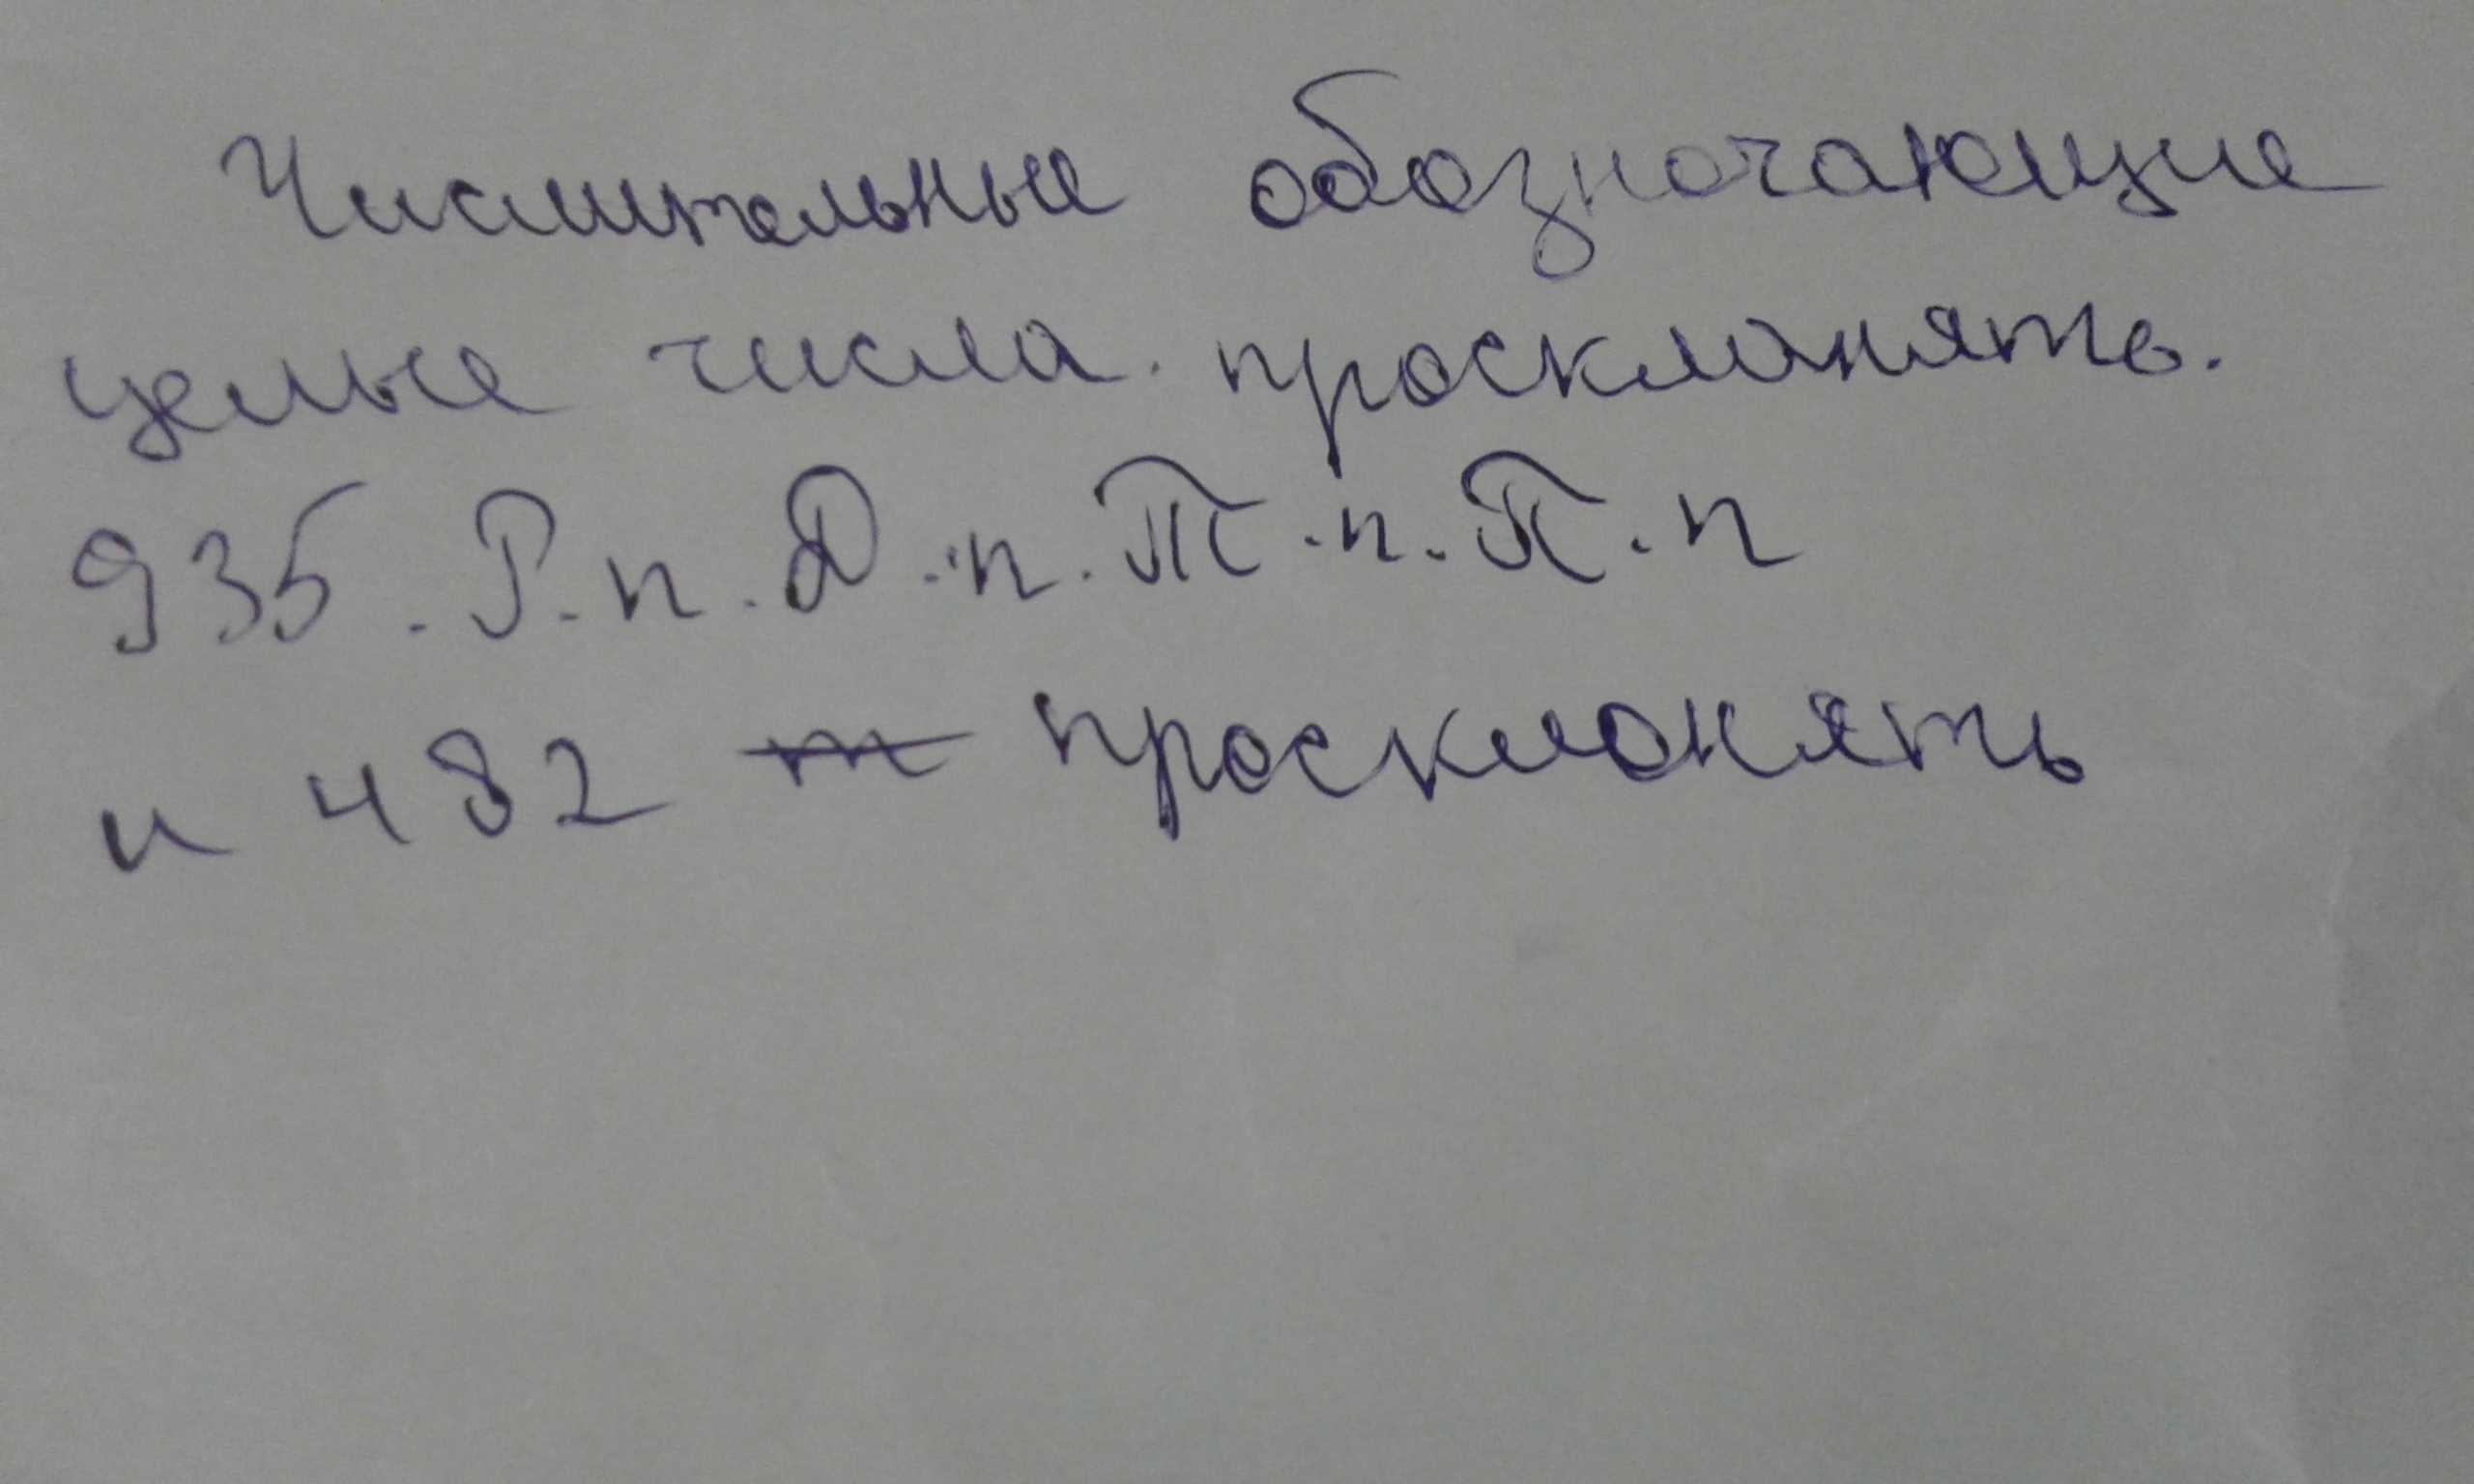 Числительные обозначающие
целые числа. просклонять.
935. Р.п. Д.п. Т.п. П.п
и 482 просклонять